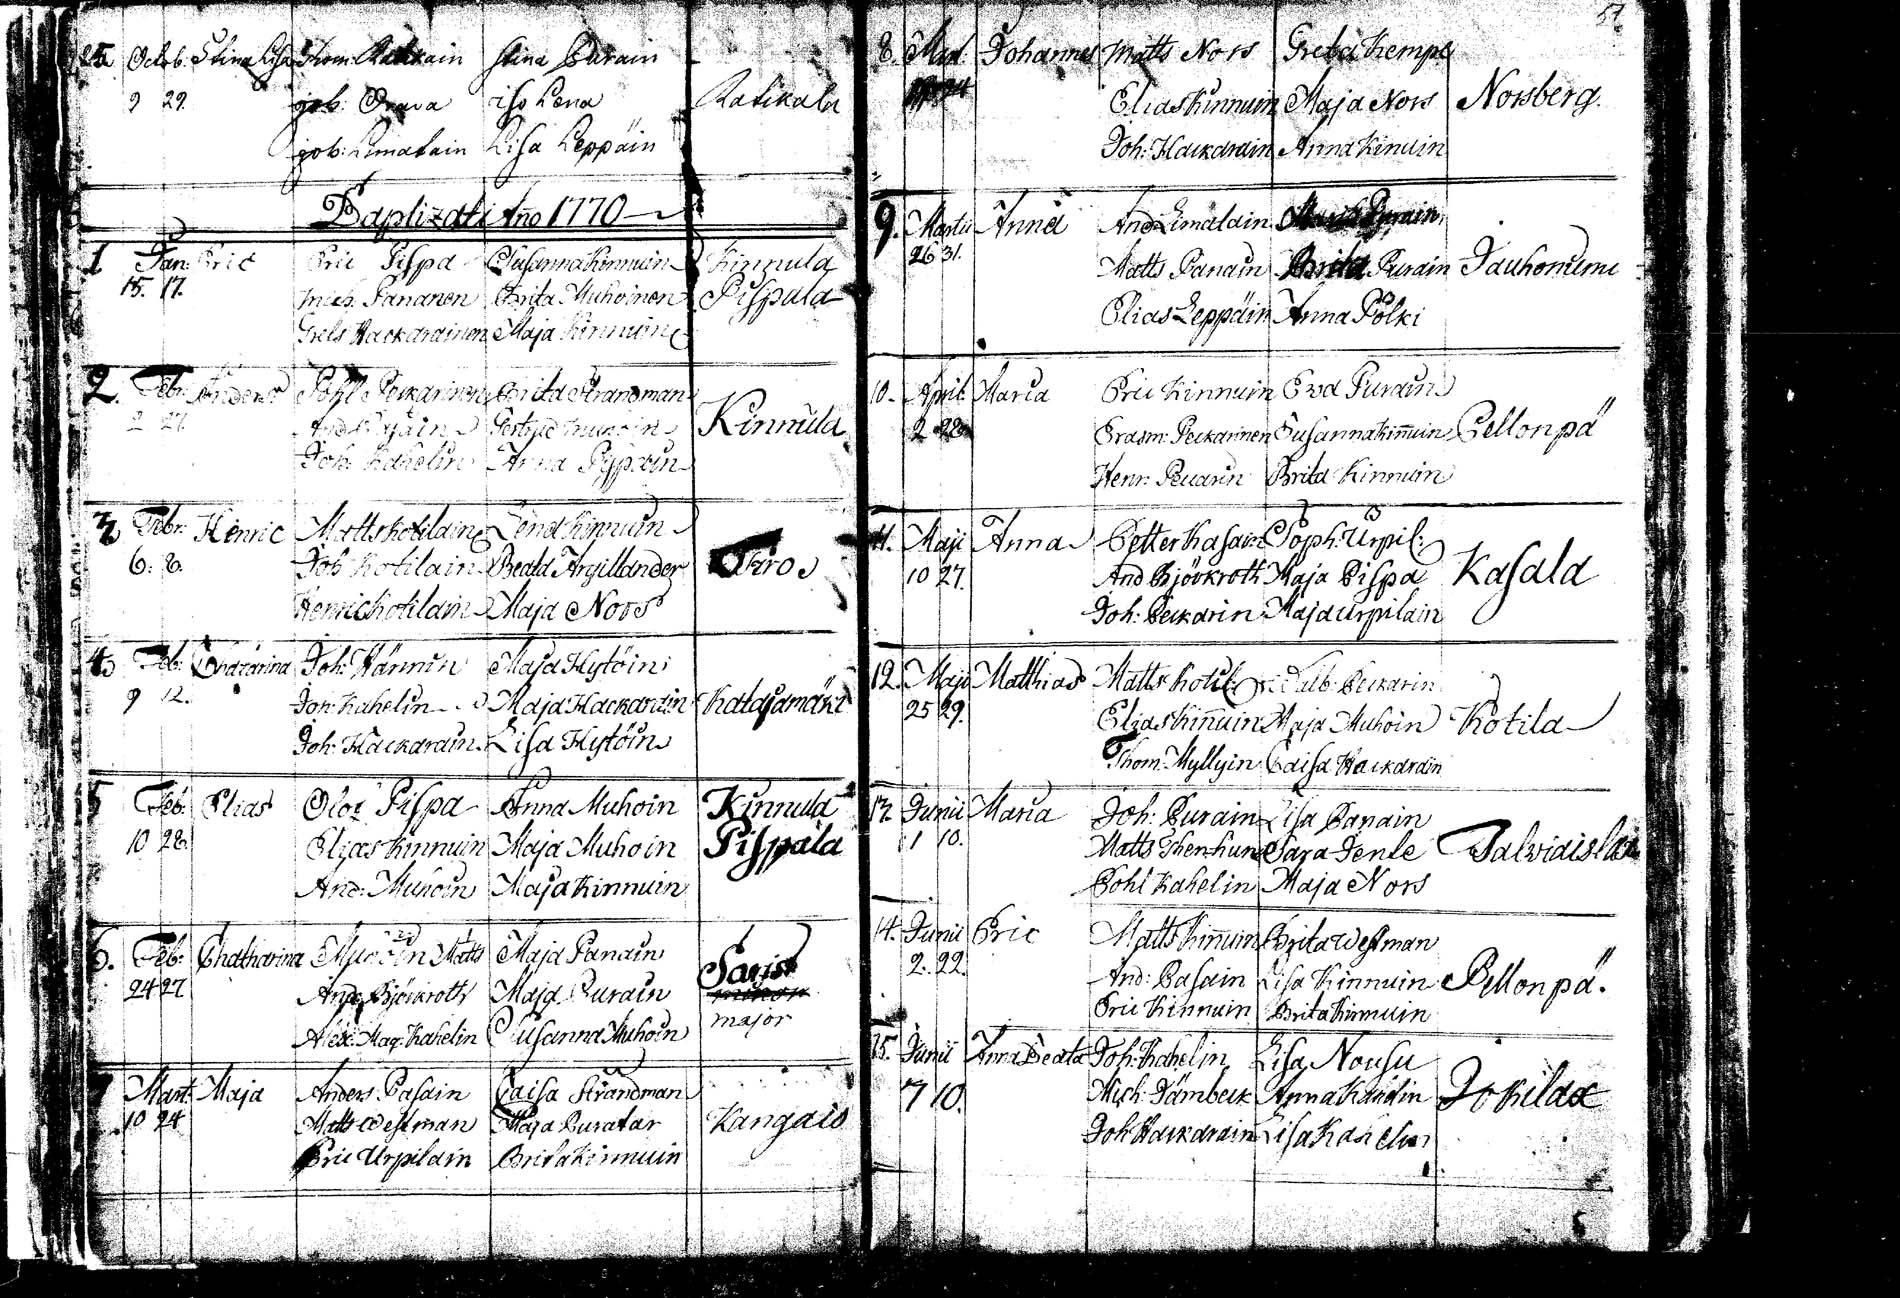 25. Octob. Stina Lisa Thom: Ratikain Stina Purain
9 29. job: Orava Lena Ratikala
job: Limatain Lisa Leppäin
Baptizati Año 1770
1 Jan: Eric Eric Pispa Susanna Kinnuin Kinnula
15. 17. Mich. Pananen Brita Muhoinen Pispala
Grels Hackarainen Maja Kinnuin
2. Febr. Anders Pohl Peckarinen Brita Strandman
2 27. And. Gertrud Kinnula
Joh: Kahelin Anna
3 Febr: Henric Matts Kotilain Lena Kinnuin
6. 8. Job Kotilain Beata Argillander
Henric Kotilain Maja Nors
4 Feb: Chatarina Joh: Hännin Maja Hytöin
9 12. Joh: Kahelin Maja Hackarain Katajamäki
Joh: Hackarain Lisa Hytöin
5 Feb: Elias Olof Pispa Anna Muhoin Kinnula
10 28. Elias Kinnuin Maja Muhoin Pispala
And: Muhoin Maja Kinnuin
6. Feb: Chatharina Muhoin Matts Maja Panain
24 27 And. Björkroth Maja Purain minor
Alex: Mag: Kahelin Susanna Muhoin major
7 Mart: Maja Anders Pasain Caisa Strandman
10 24 Matts Westman Maja Puratar Kangais
Eric Urpilain Brita Kinnuin
57
8. Mart. Johannes Matts Nors Greta Kempe
24 Elias Kinnuin Maja Nors Norsberg.
Joh: Hackarain Anna Kinuin
9. Martii Anna And: Limatain
26 31. Matts Panain Brita Purain Jauhoniemi
Elias Leppäin Anna Pölki
10. April. Maria Eric Kinnuin Eva Purain
2 28. Erasm: Peckarinen Susanna Kiñuin Pellonpä
Henr: Peckarin Brita Kinnuin
11. Maji Anna Petter Kasain Soph: Urpil:
10 27. And Björkroth Maja Pispa Kasala
Joh: Peckarin Maja Urpilain
12. Maji Matthias Matts Kotil: Valb: Peckarin
25 29. Elias Kiñuin Maja Muhoin Kotila
Thom: Myllyin Caisa Hackarain
13. Junii Maria Joh: Purain Lisa Panain
1 10. Matts Sara Talviaislax
Pohl Kahelin Maja Nors
14. Junii Eric Matts Kiñuin Brita Westman
2. 22. And: Pasain Lisa Kinnuin Pellonpä.
Eric Kinnuin Brita Kinnuin
15. Junii Anna Beata Joh: Kahelin Lisa Nousu
7 10. Mich: Jämbeck Anna Kahelin Jokilax
Joh Hackarain Lisa Kahelin